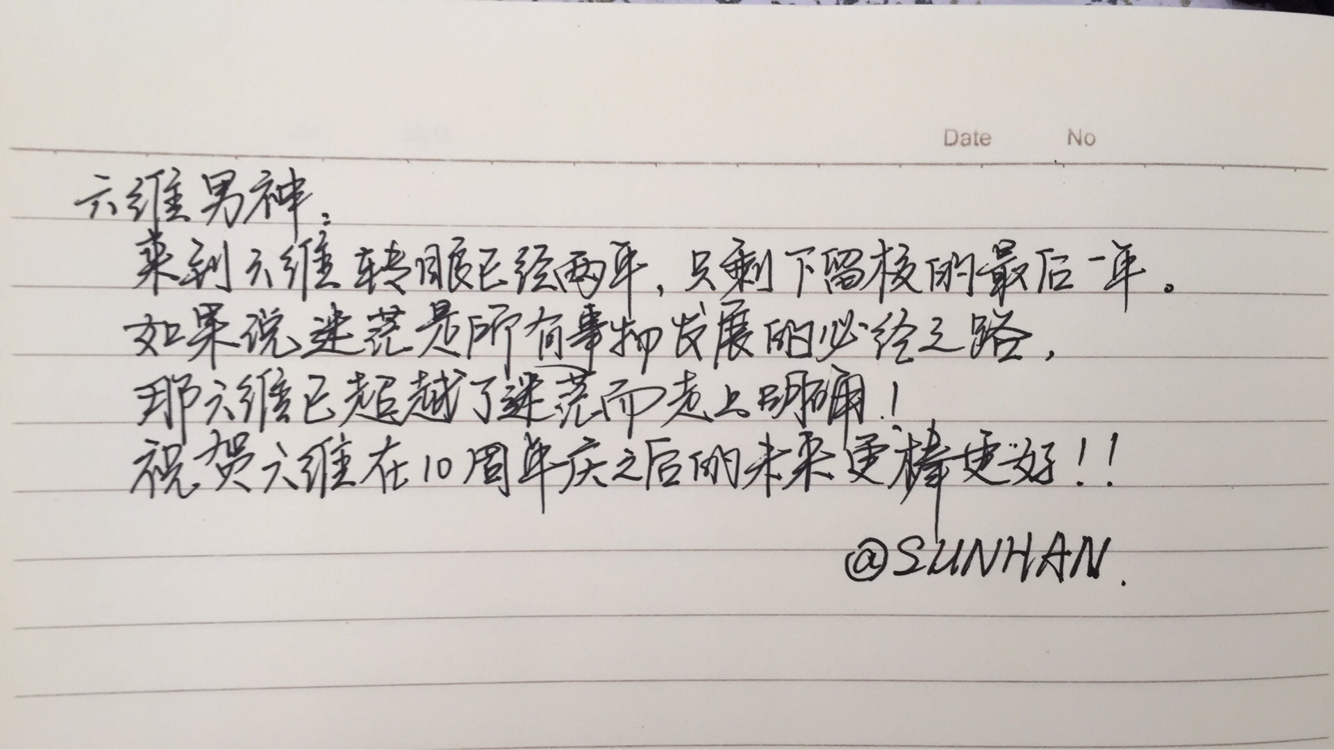 Date No
六维男神:
来到六维转眼已经两年,只剩下留校的最后一年。
如果说迷茫是所有事物发展的必经之路,
那六维已超越了迷茫而走上明确!
祝贺六维在10周年庆之后的未来更棒更好!!
@SUNHAN.